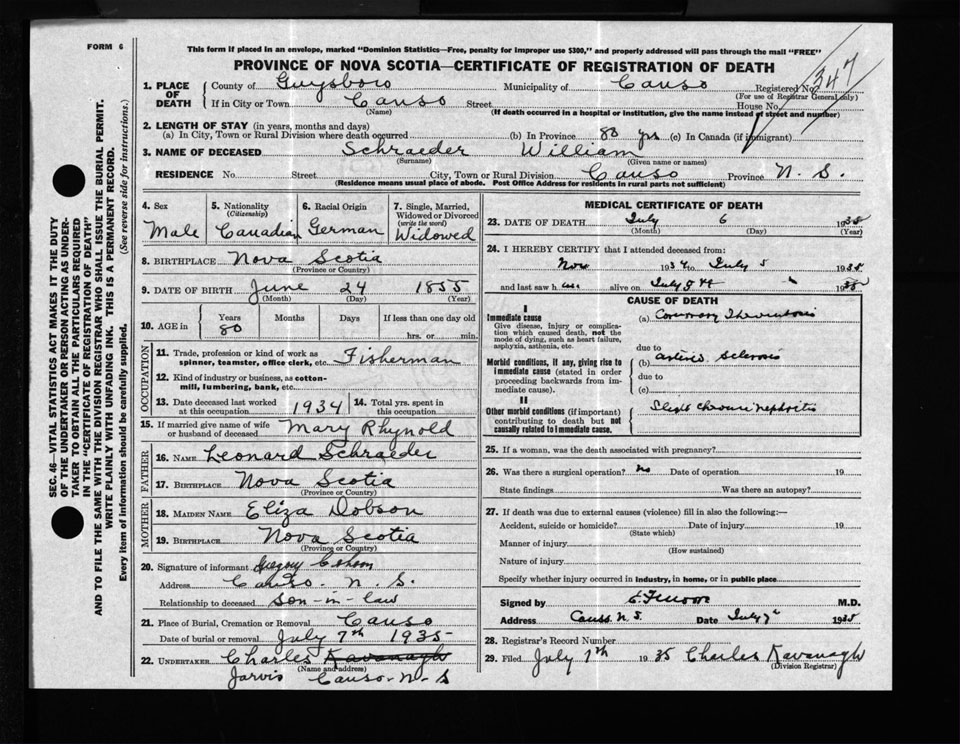 FORM 6
This form if placed in an envelope, marked "Dominion Statistics—Free, penalty for improper use $300," and properly addressed will pass through the mail "FREE"
PROVINCE OF NOVA SCOTIA—CERTIFICATE OF REGISTRATION OF DEATH
347
1. PLACE OF DEATH County of Guysboro Municipality of Canso Registered No.
(For use of Registrar General only)
If in City or Town Canso Street House No.
(Name) (If death occurred in a hospital or institution, give the name instead of street and number)
2. LENGTH OF STAY (in years, months and days)
(a) In City, Town or Rural Division where death occurred (b) In Province 80 yrs (c) In Canada (if immigrant)
3. NAME OF DECEASED Schraeder William
(Surname) (Given name or names)
RESIDENCE No. Street City, Town or Rural Division Canso Province N. S.
(Residence means usual place of abode. Post Office Address for residents in rural parts not sufficient)
4. Sex 5. Nationality (Citizenship) 6. Racial Origin 7. Single, Married, Widowed or Divorced (write the word)
Male Canadian German Widowed
8. BIRTHPLACE Nova Scotia
(Province or Country)
9. DATE OF BIRTH June 24 1855
(Month) (Day) (Year)
10. AGE in Years Months Days If less than one day old
80 hrs. or min.
OCCUPATION
11. Trade, profession or kind of work as spinner, teamster, office clerk, etc. Fisherman
12. Kind of industry or business, as cotton-mill, lumbering, bank, etc.
13. Date deceased last worked at this occupation 1934 14. Total yrs. spent in this occupation
15. If married give name of wife or husband of deceased Mary Rhynold
FATHER
16. NAME Leonard Schraeder
17. BIRTHPLACE Nova Scotia
(Province or Country)
MOTHER
18. MAIDEN NAME Eliza Dobson
19. BIRTHPLACE Nova Scotia
(Province or Country)
20. Signature of informant Gregory
Address Canso. N. S.
Relationship to deceased son-in-law
21. Place of Burial, Cremation or Removal Canso
Date of burial or removal July 7th 1935
22. UNDERTAKER Charles Kavanagh
(Name and address)
Jarvis Canso-N-S
MEDICAL CERTIFICATE OF DEATH
23. DATE OF DEATH July 6 1935
(Month) (Day) (Year)
24. I HEREBY CERTIFY that I attended deceased from:
Nov 1934 to July 5 1935
and last saw h alive on July 5th 1935
CAUSE OF DEATH
I
Immediate cause (a) Coronary Thrombosis
Give disease, injury or complication which caused death, not the mode of dying, such as heart failure, asphyxia, asthenia, etc.
due to
Morbid conditions, if any, giving rise to immediate cause (stated in order proceeding backwards from immediate cause). (b) Sclerosis
due to
(c)
II
Other morbid conditions (if important) contributing to death but not causally related to immediate cause. Slight chronic nephritis
25. If a woman, was the death associated with pregnancy?
26. Was there a surgical operation? no Date of operation 19
State findings Was there an autopsy?
27. If death was due to external causes (violence) fill in also the following:—
Accident, suicide or homicide? Date of injury 19
(State which)
Manner of injury
(How sustained)
Nature of injury
Specify whether injury occurred in industry, in home, or in public place
Signed by M.D.
Address Canso N. S. Date July 7 1935
28. Registrar's Record Number
29. Filed July 7th 1935 Charles Kavanagh
(Division Registrar)
SEC. 46—VITAL STATISTICS ACT MAKES IT THE DUTY
OF THE UNDERTAKER OR PERSON ACTING AS UNDER-
TAKER TO OBTAIN ALL THE PARTICULARS REQUIRED
IN THE "CERTIFICATE OF REGISTRATION OF DEATH"
AND TO FILE THE SAME WITH THE DIVISION REGISTRAR WHO SHALL ISSUE THE BURIAL PERMIT.
WRITE PLAINLY WITH UNFADING INK. THIS IS A PERMANENT RECORD.
Every item of information should be carefully supplied. (See reverse side for instructions.)